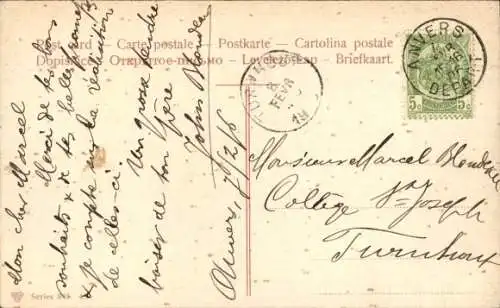 Post Card Carte postale Postkarte Cartolina postale
Dopisnice Открытое письмо Levelező-Lap Briefkaart.
Mon cher Marcel
Merci de tes bons
souhaits & de tes belles
& je compte sur la réalisation
de celles-ci
Un gros
baiser de ton père
John
Anvers, 7/2/6
TURNHOUT
8
FEVR
ANVERS
DEPART
5c 5c
Monsieur Marcel
Collège St Joseph
Turnhout
Series